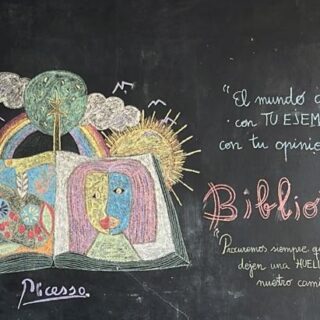 "El mundo c
con TU EJEM
con tu opinio
Biblio
"Procuremos siempre qu
dejen una HUELL
nuestro cami
Picasso